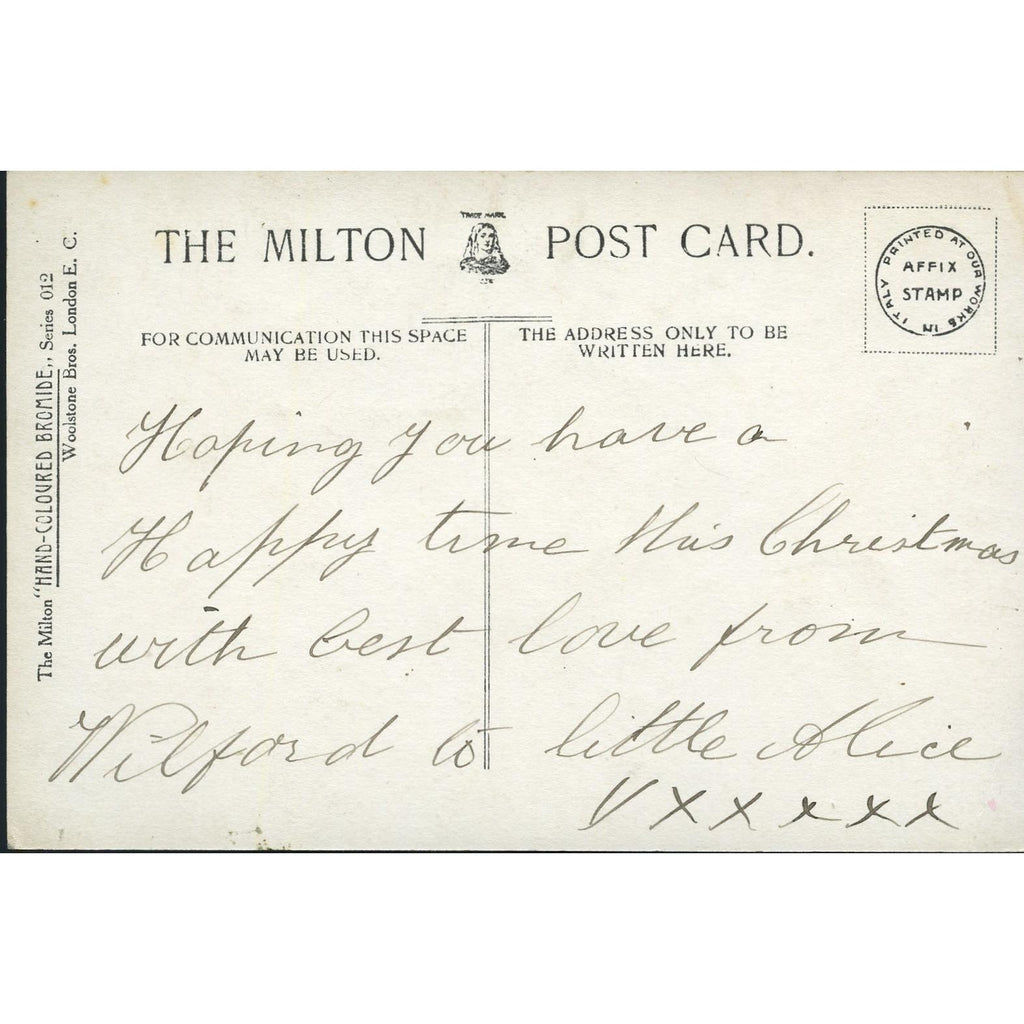 THE MILTON POST CARD.
TRADE MARK
FOR COMMUNICATION THIS SPACE
MAY BE USED.
THE ADDRESS ONLY TO BE
WRITTEN HERE.
PRINTED AT OUR WORKS IN ITALY
AFFIX
STAMP
The Milton "HAND-COLOURED BROMIDE,, Series 012
Woolstone Bros. London E. C.
Hoping you have a
Happy time this Christmas
with best love from
Wilford to little Alice
V X X X X X